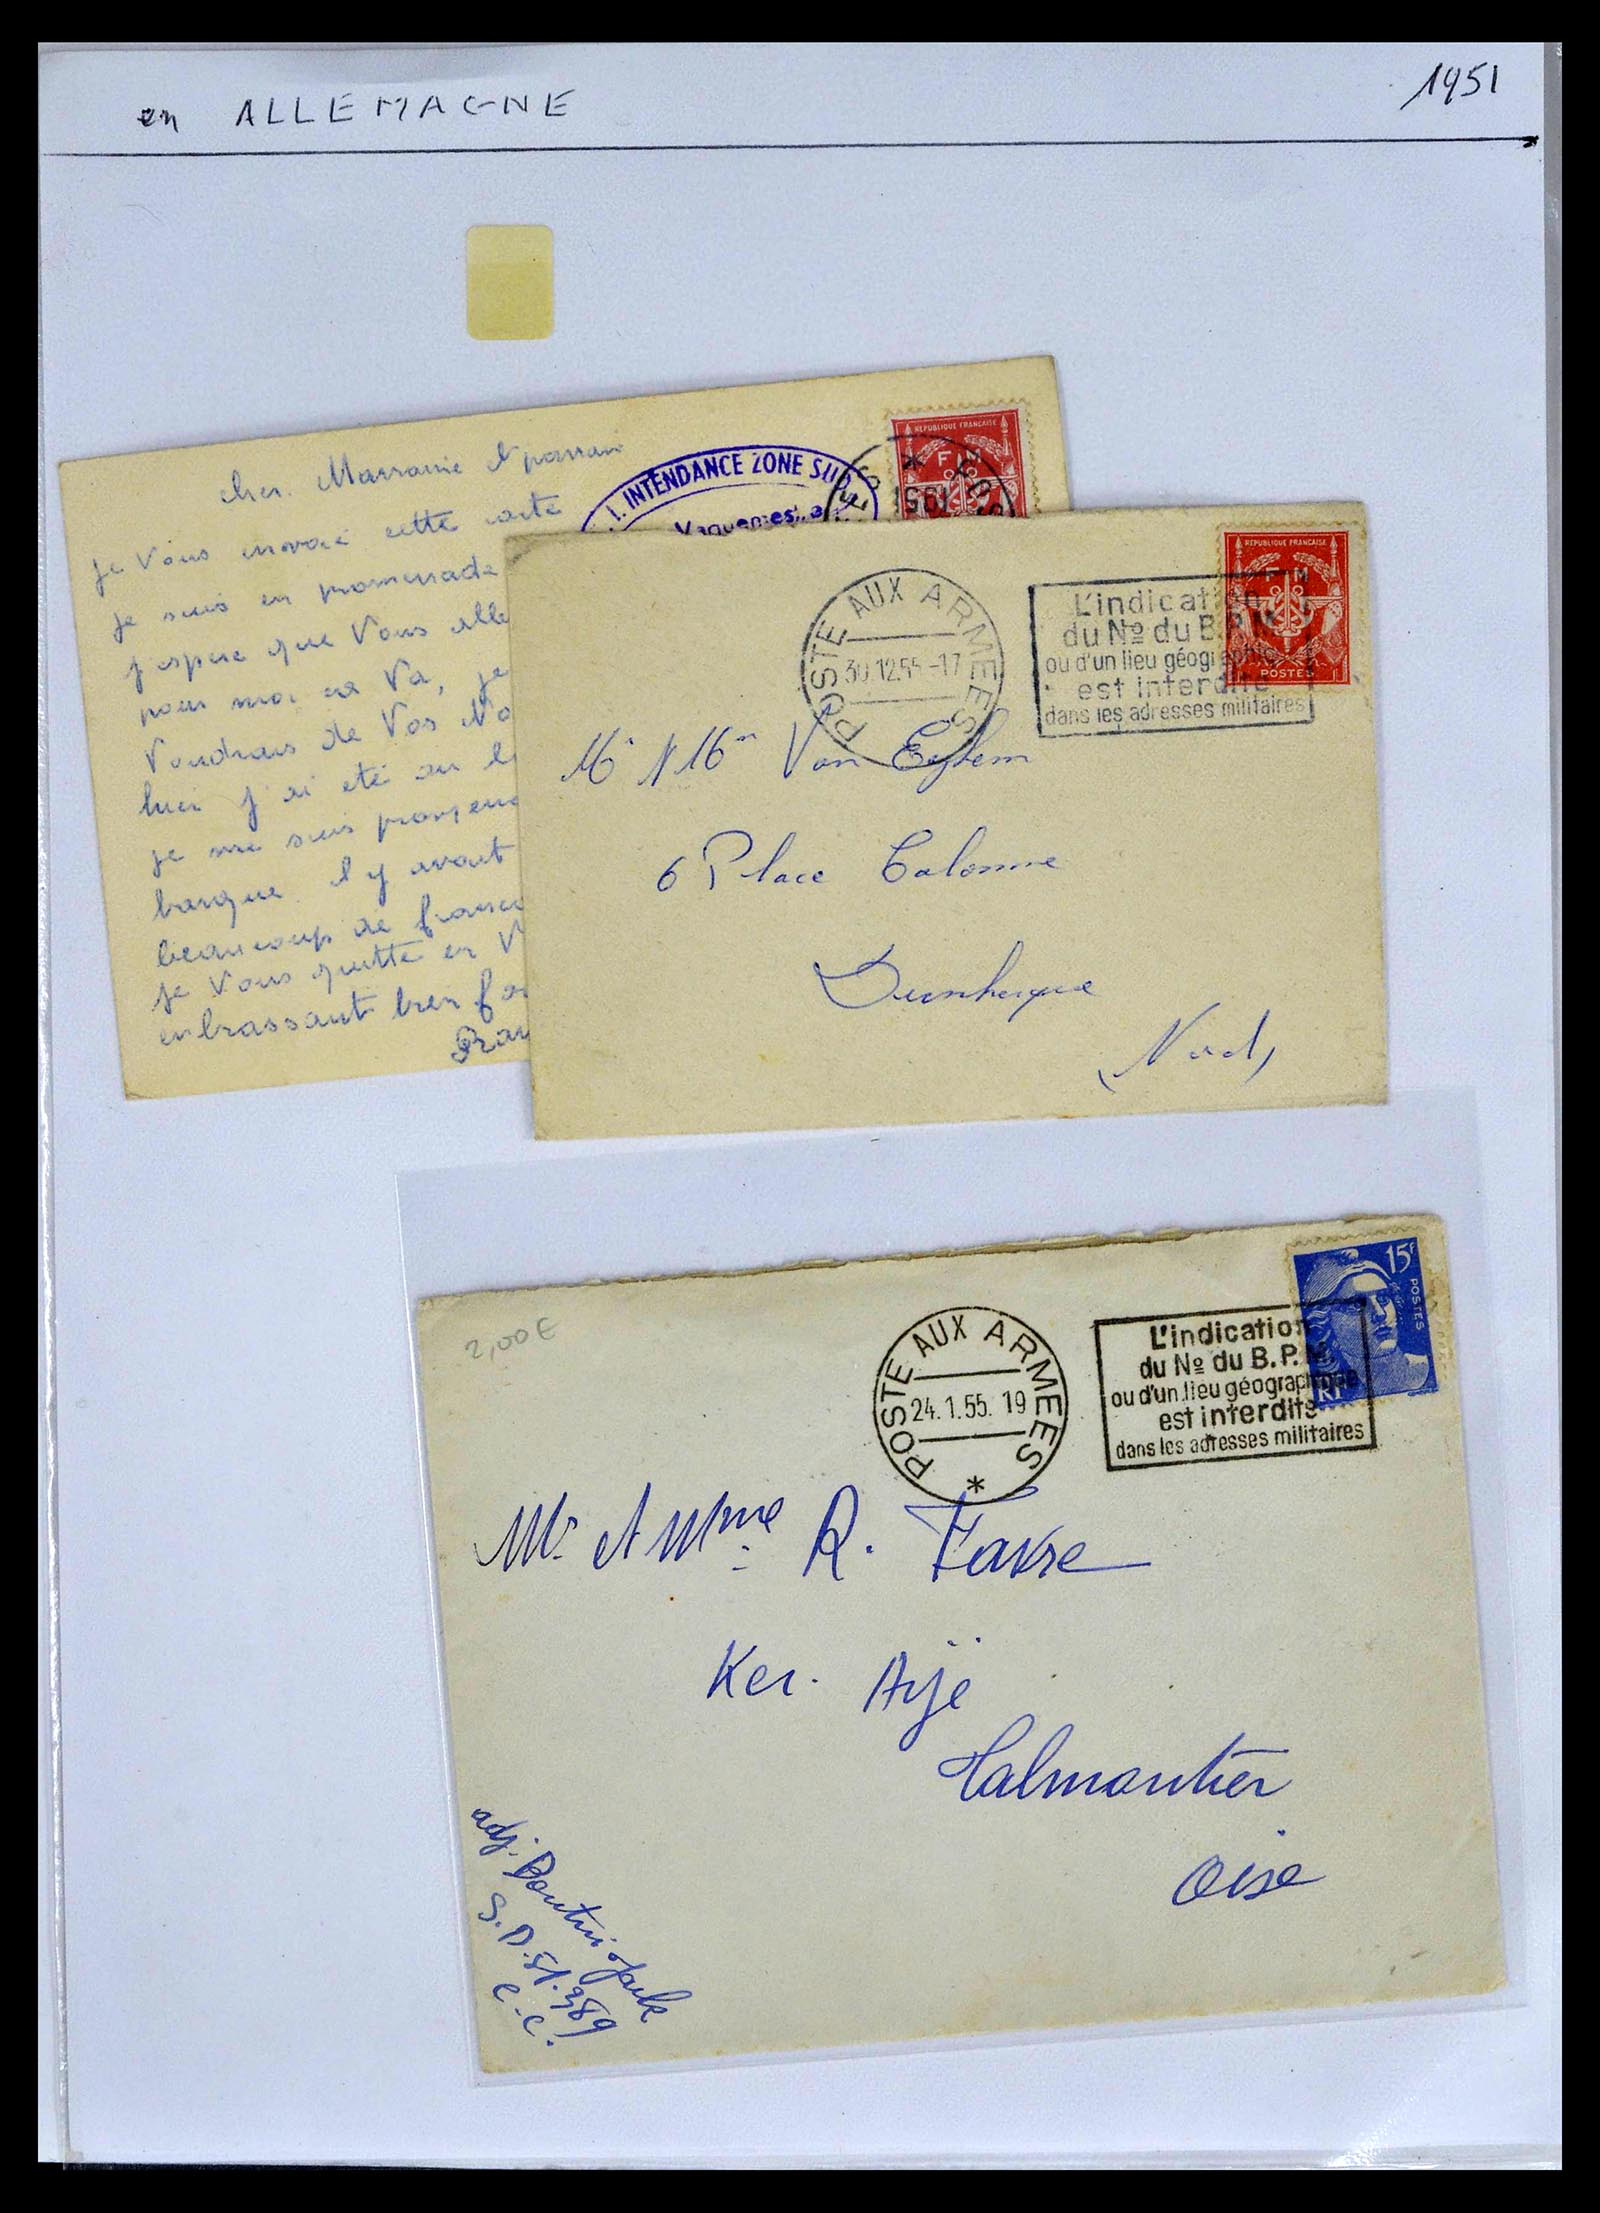 en ALLEMAGNE
1951
cher. Marraine et parrain
je Vous envoie cette carte
je suis en promenade
j'espere que Vous alle
pour moi ca Va, je
Voudrais de Vos No
hier j'ai eté au
je me suis promene
barque il y avait
beaucoup de
je Vous quitte en V
enbrassant bien for
INTENDANCE ZONE SUD
Vaguemest
1951
REPUBLIQUE FRANÇAISE
F M
POSTE AUX ARMEES
30.12.55-17
L'indication
du No du B.P.M.
ou d'un lieu géographique
est interdite
dans les adresses militaires
REPUBLIQUE FRANÇAISE
F M
POSTES
Mr et Mm Van
6 Place Calonne
Dunkerque
(Nord)
2,00€
POSTE AUX ARMEES
24.1.55. 19
*
L'indication
du No du B.P.M
ou d'un lieu géographique
est interdite
dans les adresses militaires
15F
POSTES
RF
Mr et Mme R. Favre
Ker. Ayé
Talmontier
Oise
adj.
S.P. 51.389
C.C.